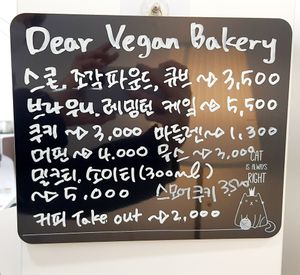 Dear Vegan Bakery
스콘, 조각파운드, 큐브 ~> 3,500
브라우니, 레밍턴 케잌 ~> 5,500
쿠키 ~> 3,000 마들렌 ~> 1,300
머핀 ~> 4,000 무스 ~> 3,000
밀크티, 소이티 (300ml)
~> 5,000 스모어쿠키 3,500
커피 Take out ~> 2,000
CAT
IS ALWAYS
RIGHT